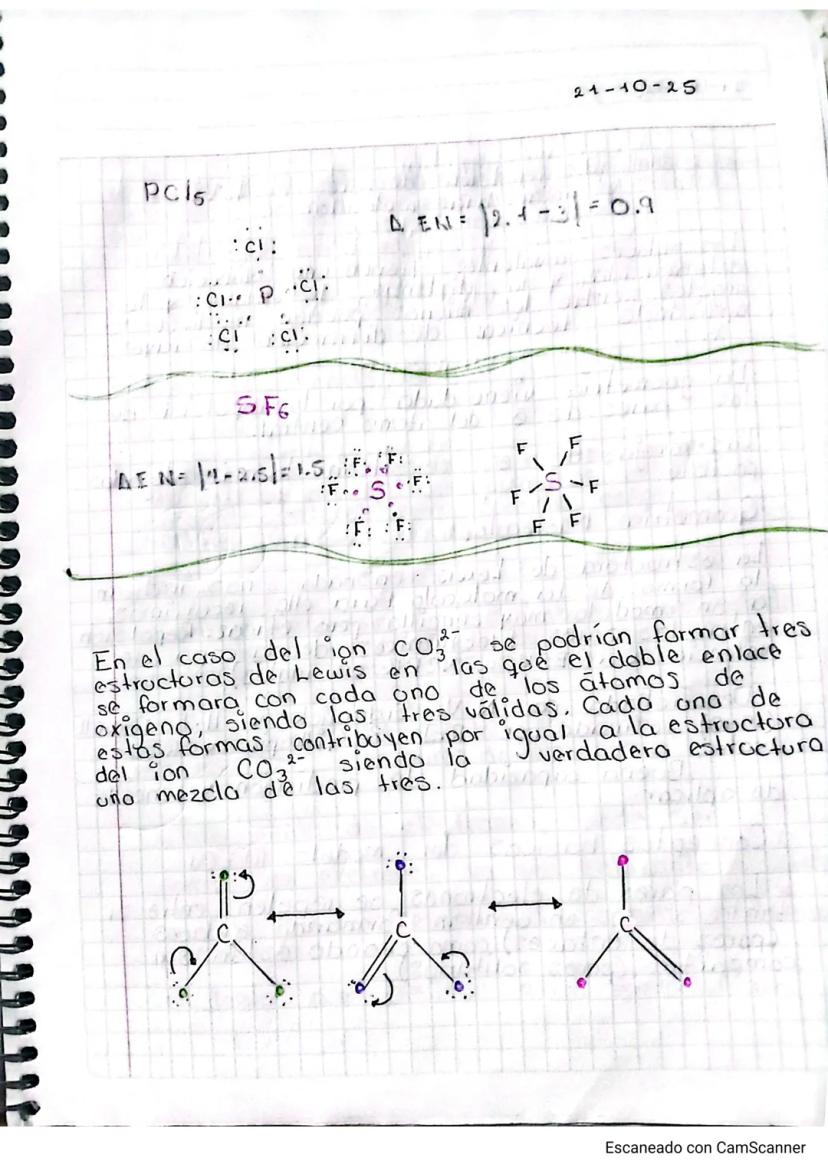 21-10-25
PCl5
Δ EN = |2.1-3| = 0.9
:Cl:
:Cl·· P ·Cl:
Cl :Cl:
SF6
Δ E N = |4-2.5| = 1.5
:F: :F:
:F·· S ·F:
:F: :F:
F F
F S F
F F
En el caso del ion CO3^2- se podrían formar tres
estructuras de Lewis en las que el doble enlace
se formara con cada uno de los átomos de
oxigeno, siendo las tres válidas. Cada una de
estas formas contribuyen por igual a la estructura
del ion CO3^2- siendo la verdadera estructura
una mezcla de las tres.
C C C
Escaneado con CamScanner